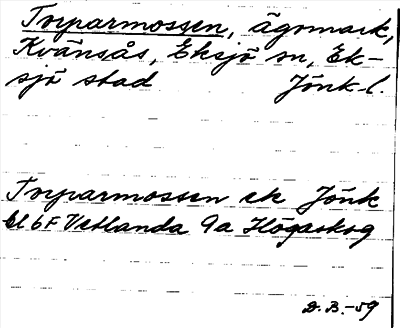 Torparmossen, ägomark,
Kvänsås, Eksjö sn, Ek-
sjö stad Jönk. l.
Torparmossen ek Jönk
bl 6F Vetlanda 9a Högaskog
D. B. -59